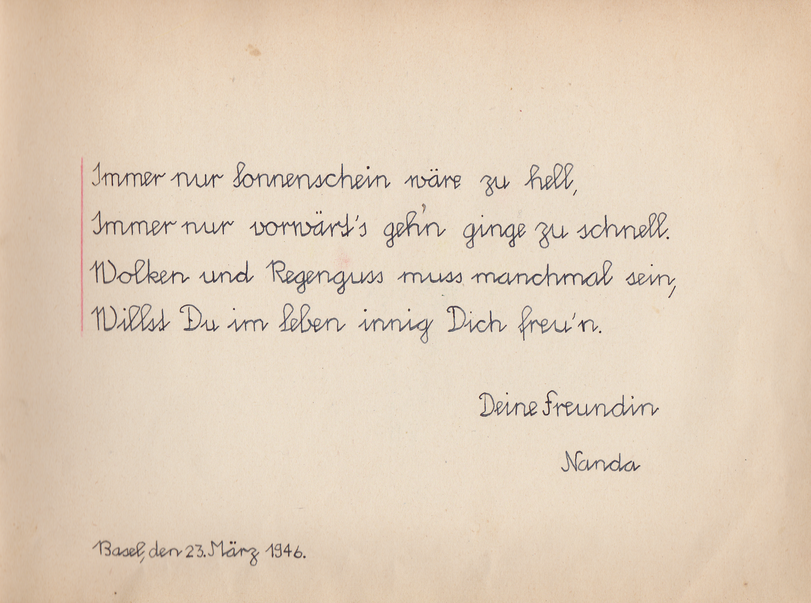 Immer nur Sonnenschein wäre zu hell,
Immer nur vorwärt's geh'n ginge zu schnell.
Wolken und Regenguss muss manchmal sein,
Willst Du im Leben innig Dich freu'n.
Deine Freundin
Nanda
Basel, den 23. März 1946.